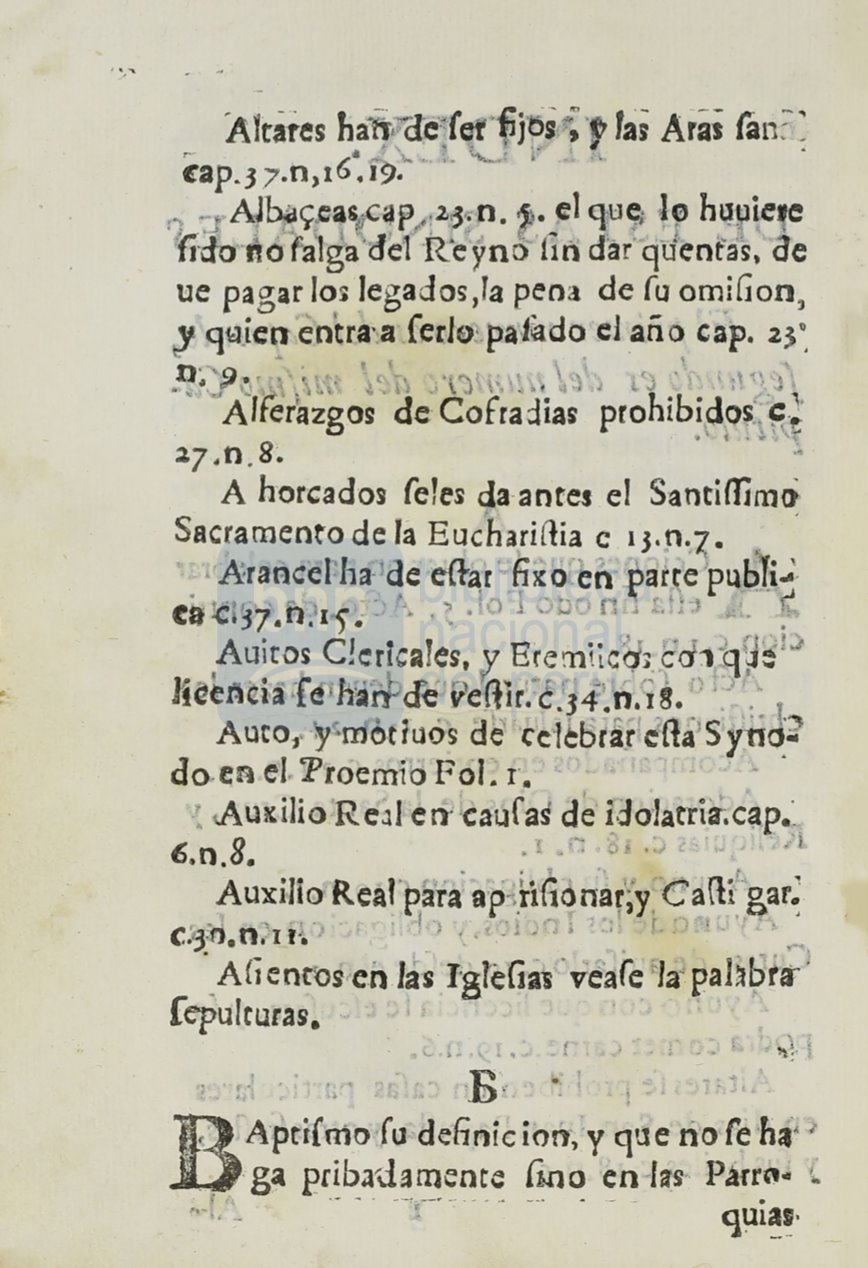 Altares han de ſer fijos, y las Aras ſan
cap.37.n,16.19.
Albaçeas, cap, 23.n. 5. el que, lo huuiere
ſido no ſalga del Reyno ſin dar quentas, de
ue pagar los legados, la pena de ſu omiſion,
y quien entra a ſerlo paſado el año cap. 23
n. 9.
Alferazgos de Cofradias prohibidos c.
27.n.8.
A horcados ſeles da antes el Santiſſimo
Sacramento de la Euchariſtia c 13.n.7.
Arancel ha de eſtar fixo en parte publi-
ca c.37.n.15.
Auitos Clericales, y Eremiticos con que
licencia ſe han de veſtir. c.34.n.18.
Auto, y motiuos de celebrar eſta Syno-
do en el Proemio Fol. 1.
Auxilio Real en cauſas de idolatria.cap.
6.n.8.
Auxilio Real para ap riſionar, y Caſti gar.
c.30.n.11.
Aſientos en las Igleſias veaſe la palabra
ſepulturas.
B
BAptiſmo ſu definicion, y que no ſe ha
ga pribadamente ſino en las Parro-
quias